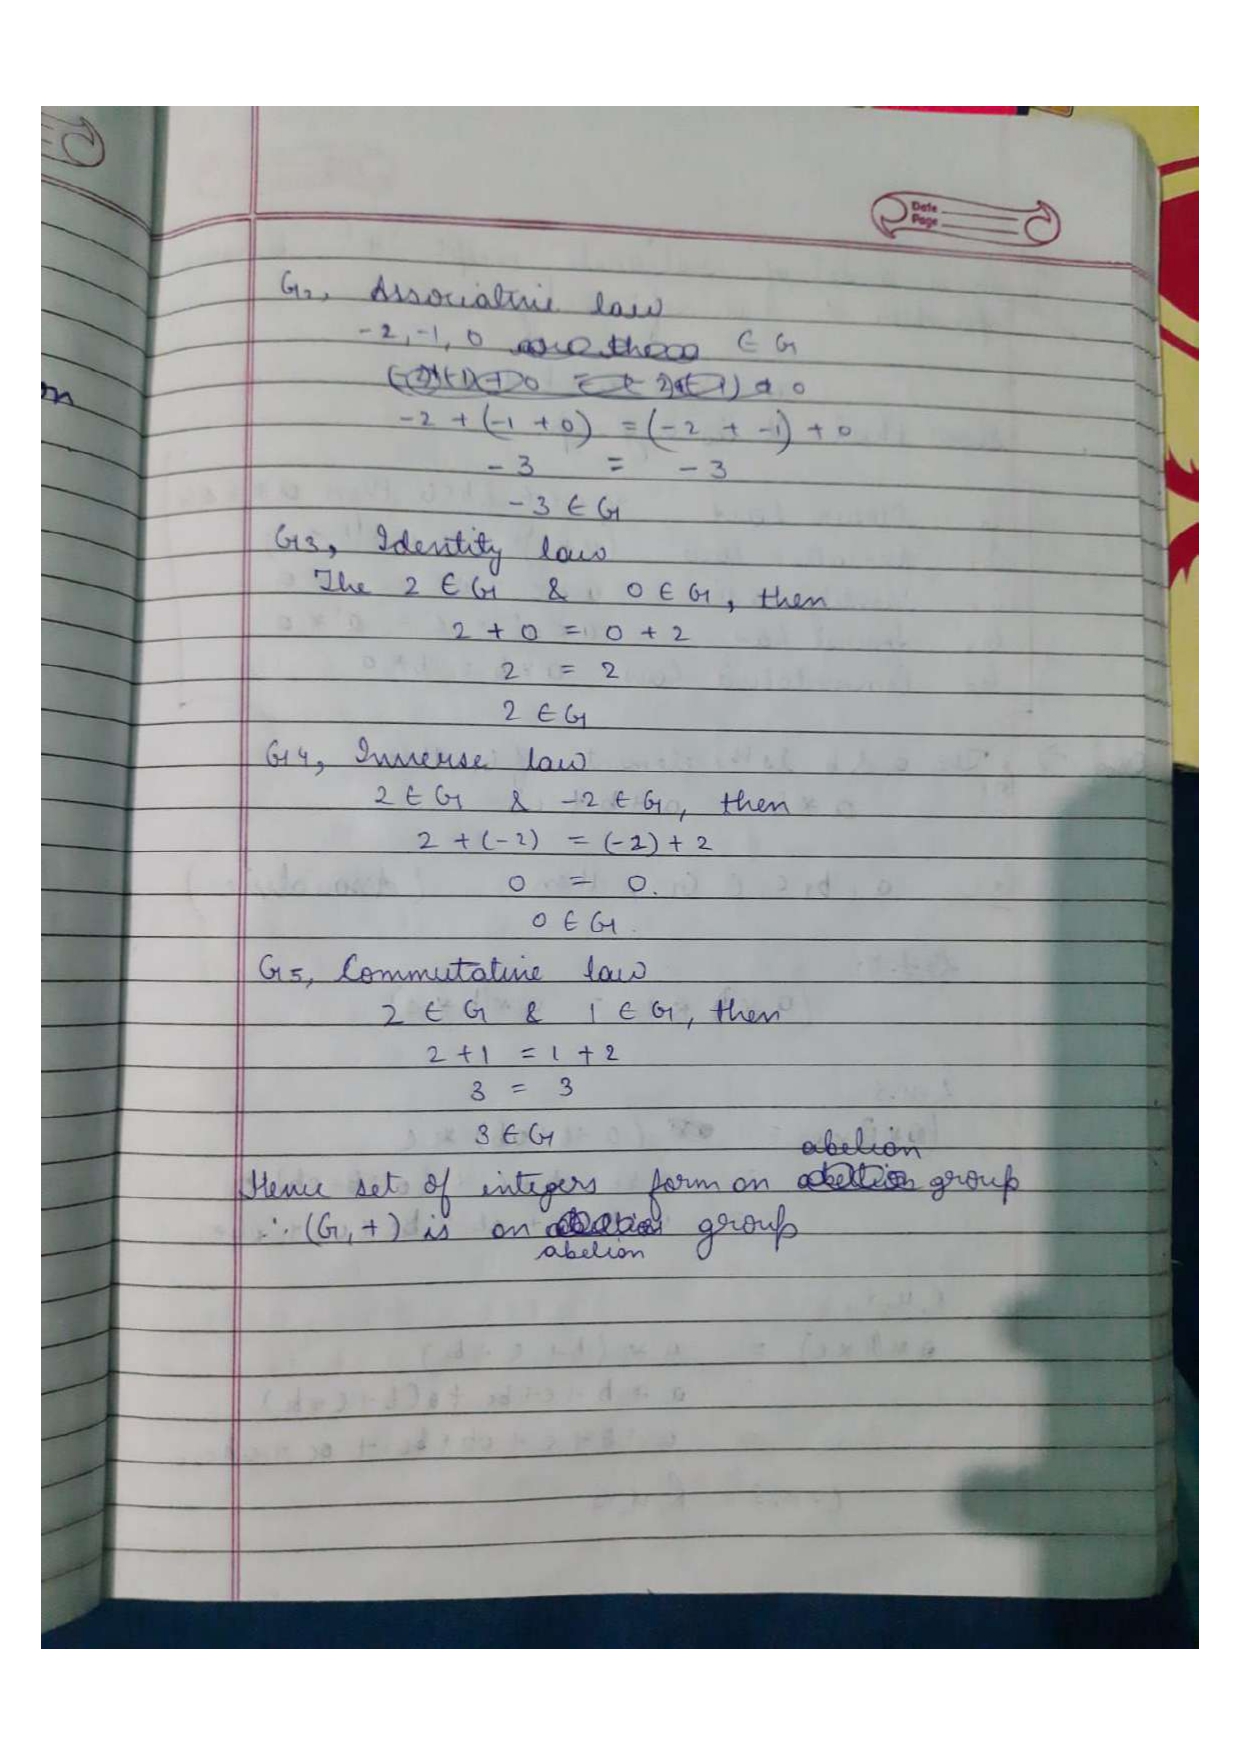 Date
Page
G2, Associative law
-2, -1, 0 ∈ G
-2 + (-1 + 0) = (-2 + -1) + 0
-3 = -3
-3 ∈ G
G3, Identity law
The 2 ∈ G & 0 ∈ G, then
2 + 0 = 0 + 2
2 = 2
2 ∈ G
G4, Inverse law
2 ∈ G & -2 ∈ G, then
2 + (-2) = (-2) + 2
0 = 0.
0 ∈ G.
G5, Commutative law
2 ∈ G & 1 ∈ G, then
2 + 1 = 1 + 2
3 = 3
3 ∈ G
Hence set of integers form on abelion group
∴ (G, +) is on abelion group